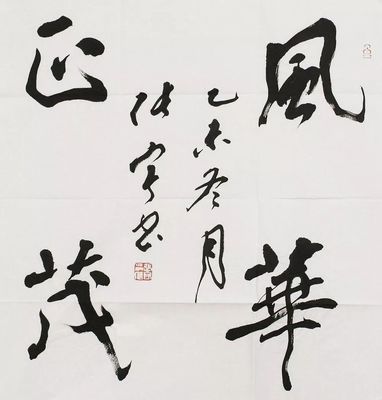 風華
正茂
乙未冬月
张 书